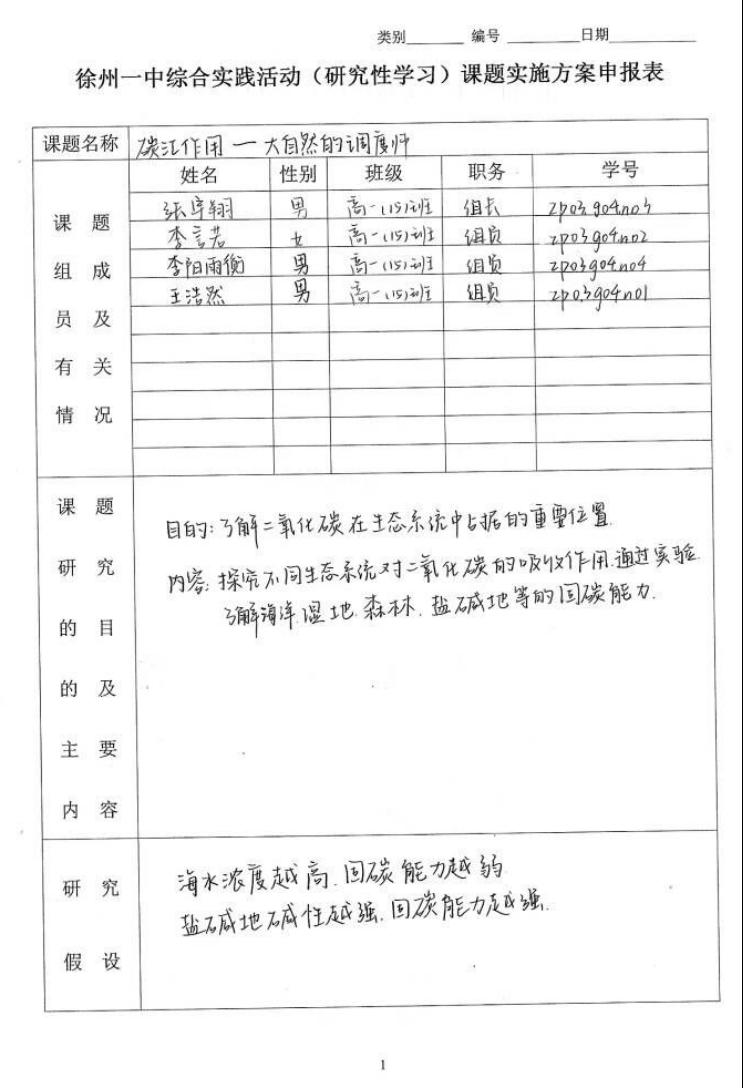 类别________ 编号 __________日期____________
徐州一中综合实践活动（研究性学习）课题实施方案申报表
课题名称 碳汇作用 — 大自然的调度师
课题组成员及有关情况
姓名 性别 班级 职务 学号
男 高一(15)班 组长 zp03g04no3
李言若 女 高一(15)班 组员 zp03g04no2
李阳雨衡 男 高一(15)班 组员 zp03g04no4
王浩然 男 高一(15)班 组员 zp03g04no1
课题研究的目的及主要内容
目的：了解二氧化碳在生态系统中占据的重要位置.
内容：探究不同生态系统对二氧化碳的吸收作用.通过实验
了解海洋.湿地.森林.盐碱地等的固碳能力.
研究假设
海水浓度越高.固碳能力越弱
盐碱地碱性越强.固碳能力越强.
1